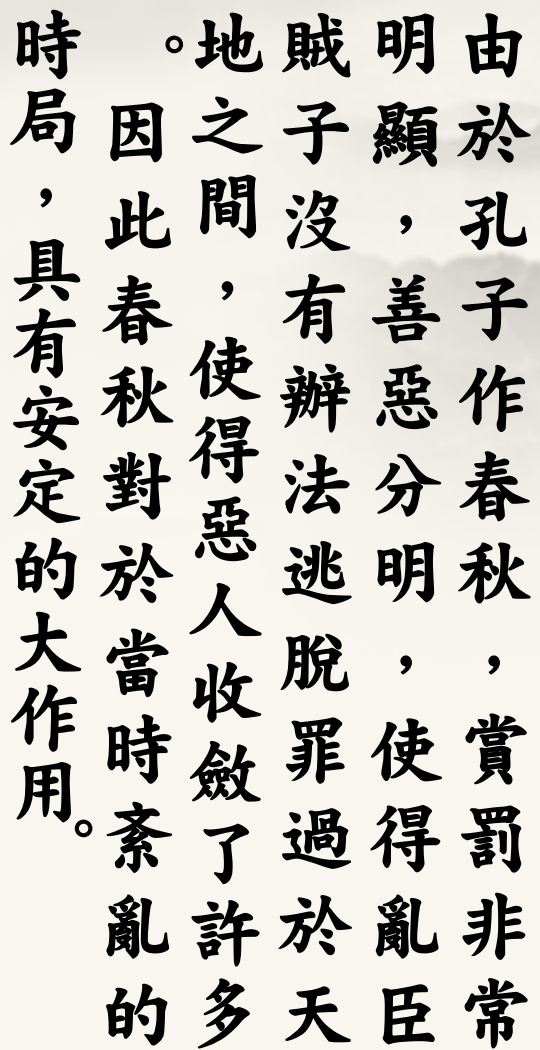 由於孔子作春秋，賞罰非常
明顯，善惡分明，使得亂臣
賊子沒有辦法逃脫罪過於天
地之間，使得惡人收斂了許多
。因此春秋對於當時紊亂的
時局，具有安定的大作用。